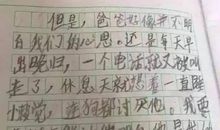 但是，爸爸好像并不明
白我们的心思。还是每天早
出晚归，一个电话就又被叫
走了，休息天就想着一直睡
小觉，连狗都讨厌他。我要